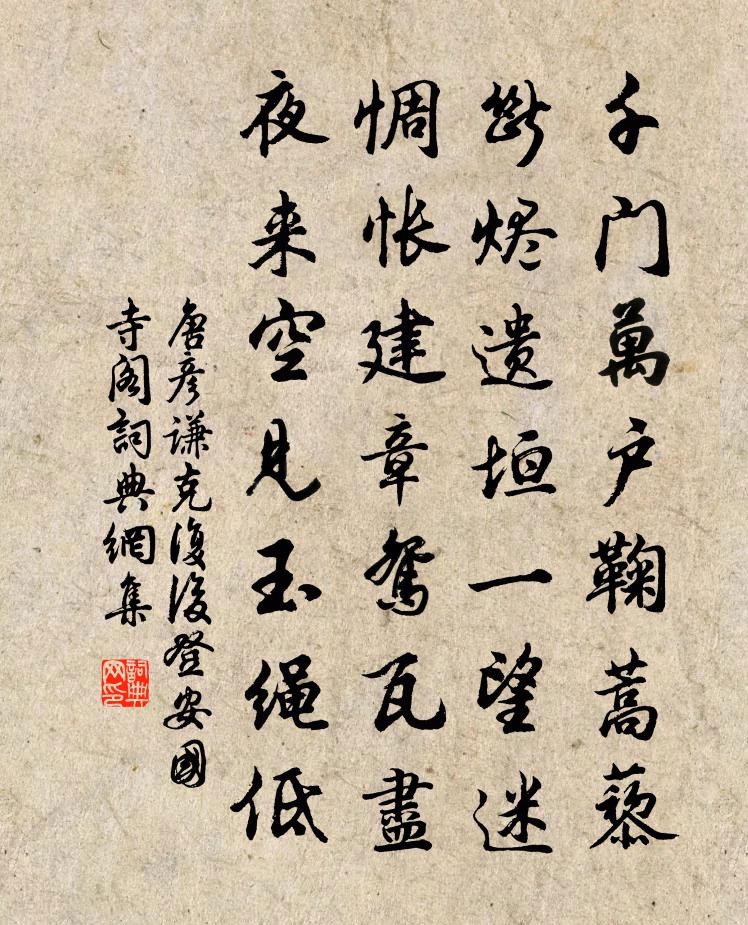 千门萬户鞠蒿藜
断烬遗垣一望迷
惆怅建章鸳瓦盡
夜来空見玉绳低
唐彦谦克復後登安國
寺阁詞典網集
詞典网印